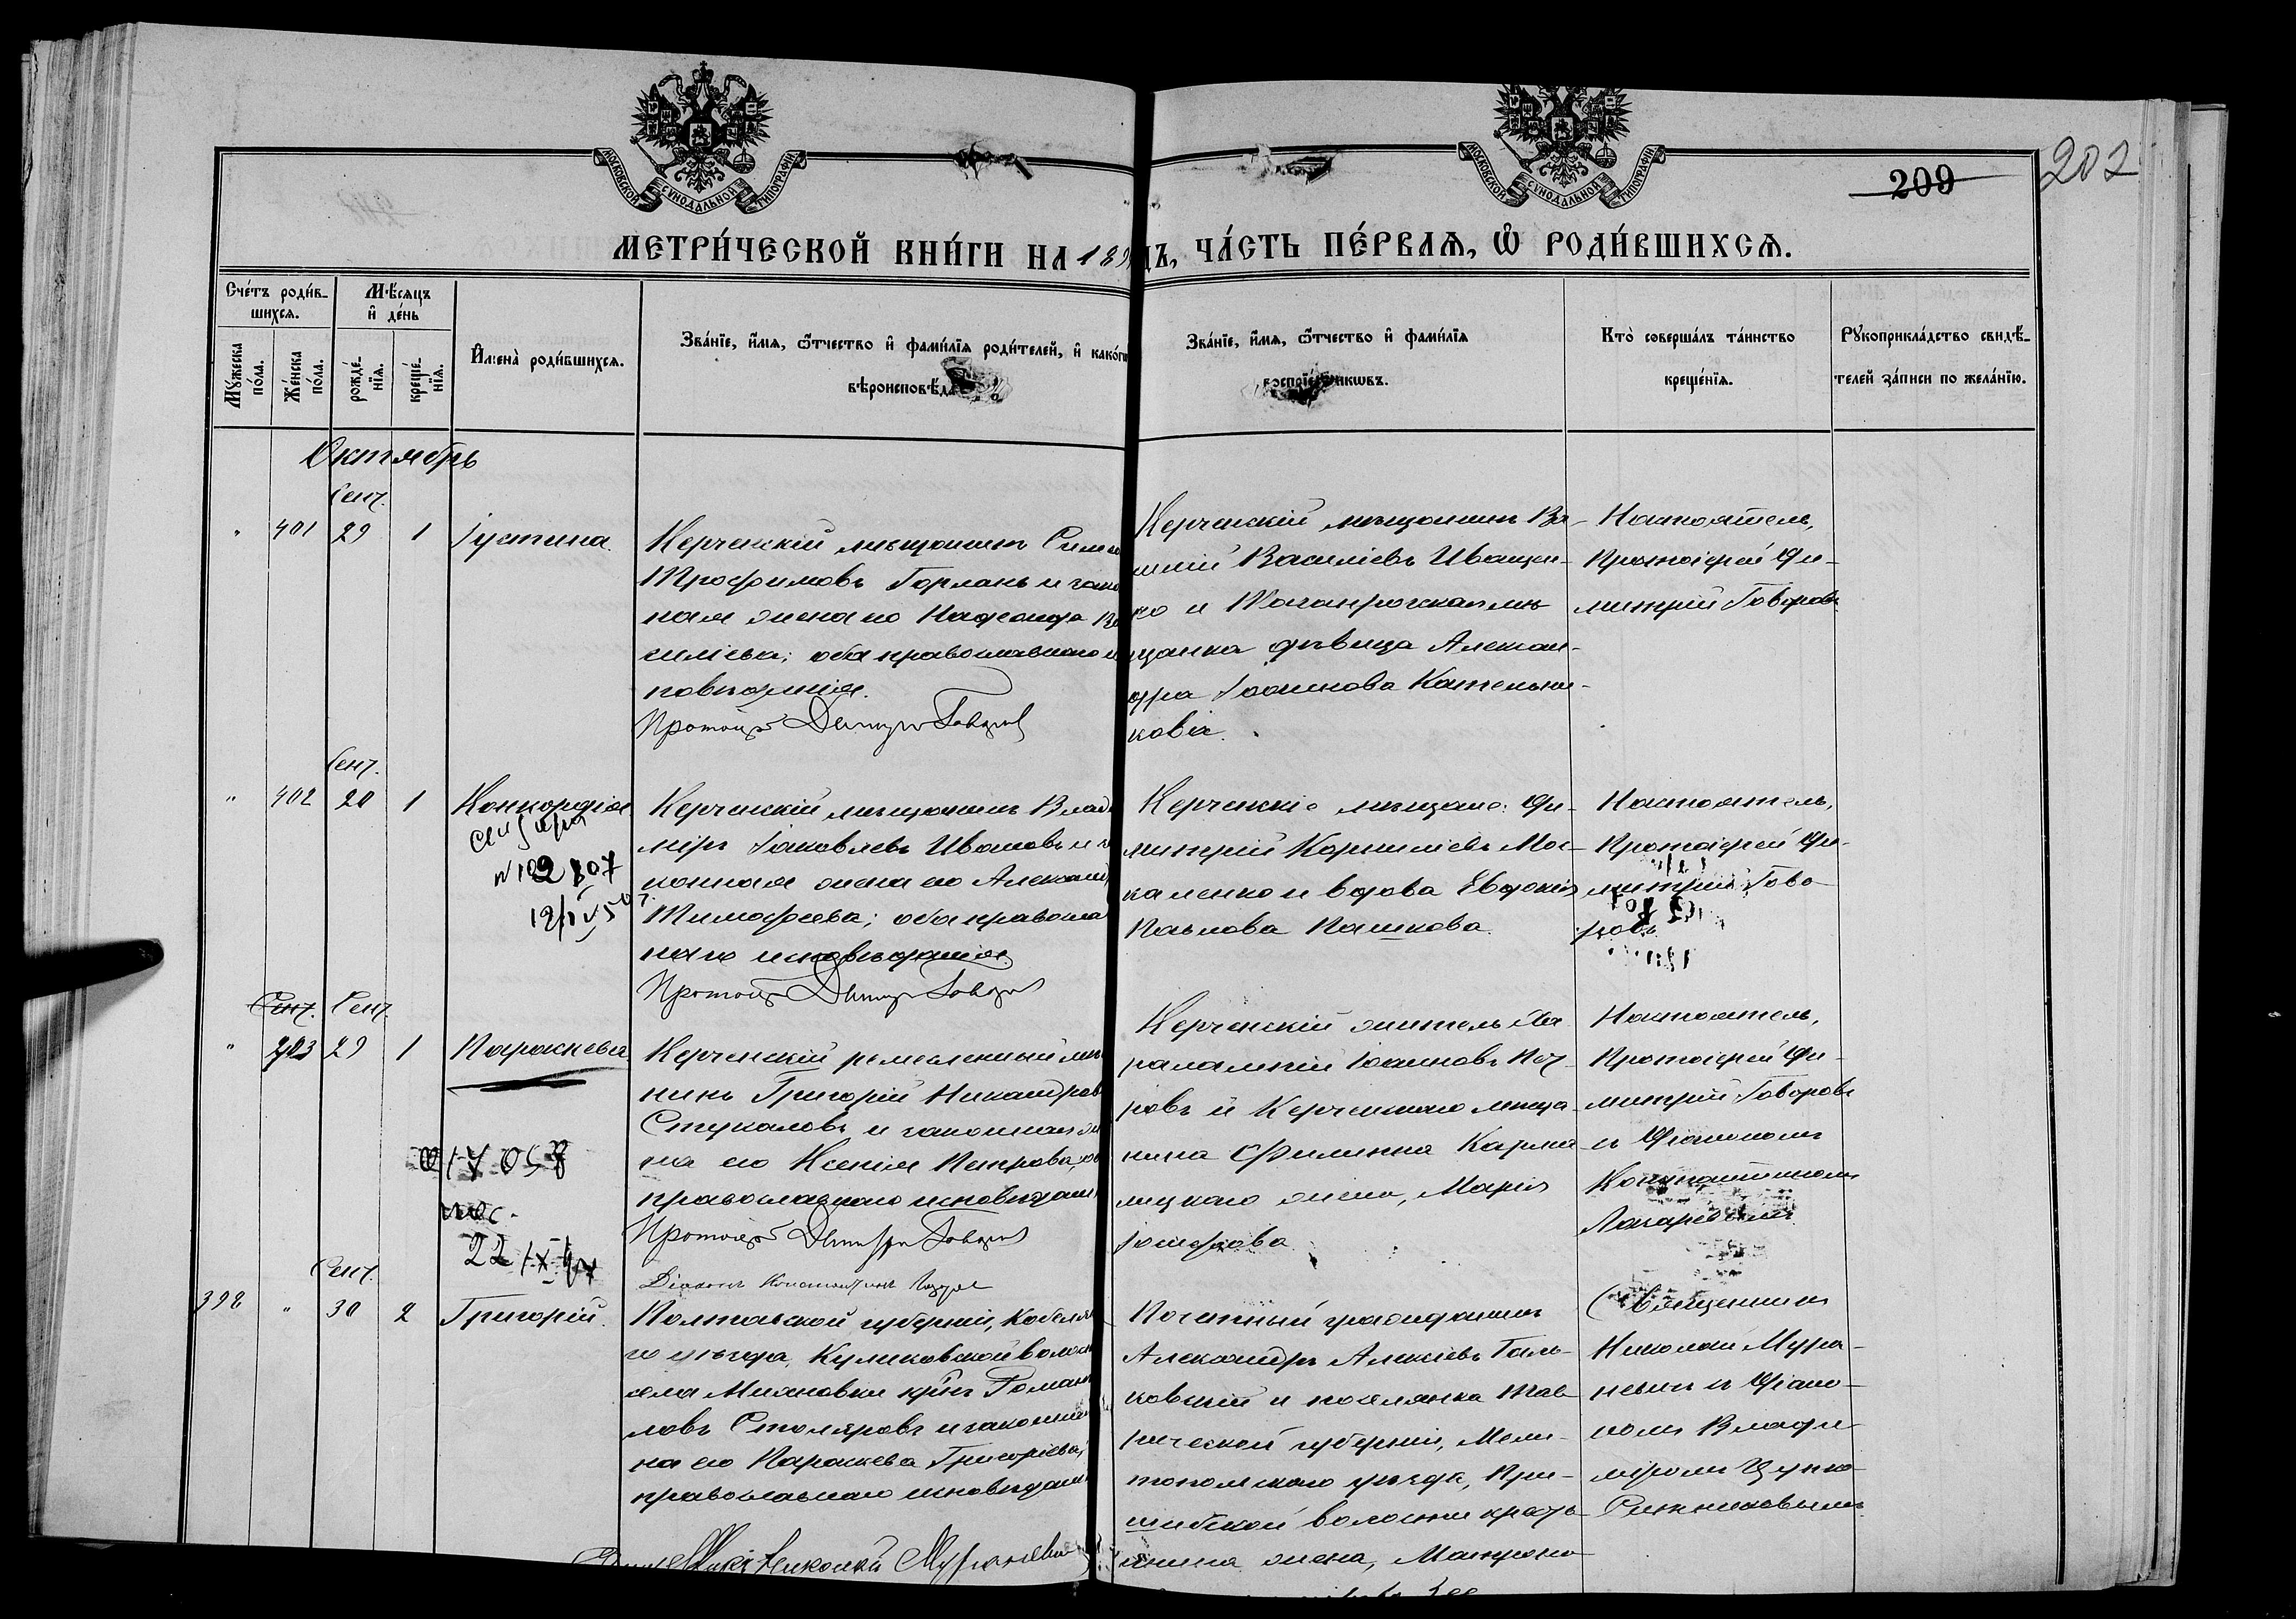 МОСКОВСКОЙ СУНОДАЛЬНОЙ ТИПОГРАФІИ
МОСКОВСКОЙ СУНОДАЛЬНОЙ ТИПОГРАФІИ
209
202
МЕТРИ́ЧЕСКОЙ КНИ́ГИ НА 189
ДЪ, ЧА́СТЬ ПЕ́РВАѦ, Ѽ РОДИ́ВШИХСѦ.
Сче́тъ роди́в-
шихсѧ.
Мѣ́сѧцъ
и҆ де́нь
Мꙋ́жеска
по́ла.
Же́нска
по́ла.
рожде́-
нїѧ.
креще́-
нїѧ.
И҆мена̀ роди́вшихсѧ.
Зва́нїе, и҆́мѧ, ѻ҆́тчество и҆ фами́лїѧ роди́телей, и҆ како́гѡ
вѣроисповѣда
Зва́нїе, и҆́мѧ, ѻ҆́тчество и҆ фами́лїѧ
воспрїе́мникѡвъ.
Кто̀ соверша́лъ та́инство
креще́нїѧ.
Рꙋкоприкла́дство свидѣ́-
телей за́писи по жела́нїю.
Октябрь
Сент.
" 401 29 1 Іустина.
Керченскій мѣщанинъ Симе
Трофимовъ Горлань и зако
ная жена его Надежда Ва
силіева; оба православнаго и
повѣданія.
Протоіер Димитр Говоров
Керченскій мѣщанинъ Ва-
силій Василіевъ Иващен-
ко и Таганрогская мѣ
щанка дѣвица Алексан-
дра Іоаннова Котельни-
кова.
Настоятель,
Протоіерей Ди-
митрій Говоровъ
Сент.
" 402 20 1 Конкордія.
12/IV 50 г.
Керченскій мѣщанинъ Влад
міръ Іаковлевъ Ивановъ и з
конная жена его Александ
Тимофеева; оба правосла
наго исповѣданія.
Протоіер Димитр Говоров
Керченскіе мѣщане: Ди-
митрій Корниліевъ Мос-
каленко и вдова Евдокія
Павлова Пашкова.
Настоятель,
Протоіерей Ди-
митрій Гово-
ровъ
Сент. Сент.
" 403 29 1 Параскева
22/IX
Керченскій ремесленный мѣщ
нинъ Григорій Никандров
Стукаловъ и законная же
на его Ксенія Петрова, об
православнаго исповѣдані
Протоіер Димитри Говоров
Діаконъ Константинъ Лазарев
Керченскій житель Ха
ралампій Іоанновъ
ровъ и Керченскаго мѣща-
нина Филиппа Карма
лицкаго жена, Марія
Іосифова
Настоятель,
Протоіерей Ди-
митрій Говоровъ
съ Діакономъ
Константиномъ
Лазаревымъ.
Сент.
398 " 30 2 Григорій.
Полтавской губерніи, Кобеляк
го уѣзда, Куликовской волост
села кр̃нъ Роман
ловъ Столяровъ и законна
на его Параскева Григоріева,
православнаго исповѣдані
Николай Мураневич
Почетный гражданинъ
Александръ Алексіевъ Галь-
ковскій и поселянка Тав
рической губерніи, Мели-
топольскаго уѣзда, При-
шибской волости крестья
янина жена, Матрона
Священникъ
Николай Мура-
невич съ Діако-
номъ Влади-
міромъ Цупко-
Ситниковымъ.